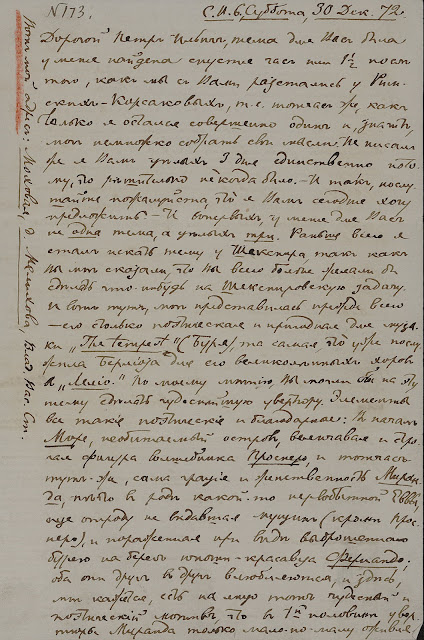 № 173. С.П.б, Суббота, 30 Дек. 72.
Дорогой Петръ Ильичъ, тема для Васъ была
у меня найдена спустя часъ или 1½ послѣ
того, какъ мы съ Вами разстались у Рим-
скихъ-Корсаковыхъ, т.е. тотчасъ же, какъ
только я остался совершенно одинъ и, значитъ,
могъ немножко собрать свои мысли. Не писалъ
же я Вамъ цѣлыхъ 3 дня единственно пото-
му, что рѣшительно некогда было. — Итакъ, послу-
шайте пожалуйста, что я Вамъ сегодня хочу
предложить. — И вопервыхъ, у меня для Васъ
не одна тема, а цѣлыхъ три. Раньше всего я
сталъ искать тему у Шекспира, такъ какъ
Вы мнѣ сказали, что Вы всего больше желали бы
сдѣлать что-нибудь на Шекспировскую задачу.
И вотъ тутъ, мнѣ представилась прежде всего
— его столько поэтическая и пригодная для музы-
ки „The tempest“ (Буря), та самая, что уже послу-
жила Берліозу для его великолѣпныхъ хоровъ
въ „Леліо.“ По моему мнѣнію, Вы могли бы на эту
тему сдѣлать чудеснѣйшую увертюру. Элементы
все такіе поэтическіе и благодарные:
Море, необитаемый островъ, величавая и
фигура волшебника Просперо, и тотчасъ
тутъ-же, сама грація и женственность — Миран-
да, что-то въ родѣ какой-то первобытной Еввы,
еще отроду не видавшая мужчинъ (кромѣ Прос-
перо), и пораженная при видѣ выброшеннаго
бурею на берегъ юноши-красавца Фернандо:
оба они другъ въ друга влюбляются, и здѣсь,
мнѣ кажется, есть на лицо тотъ чудесный и
поэтическій мотивъ, что въ 1й половинѣ увер-
тюры Миранда только мало по малу
Вотъ мой адресъ: Моховая, д. Мелихова, Влад. Вас. Ст.